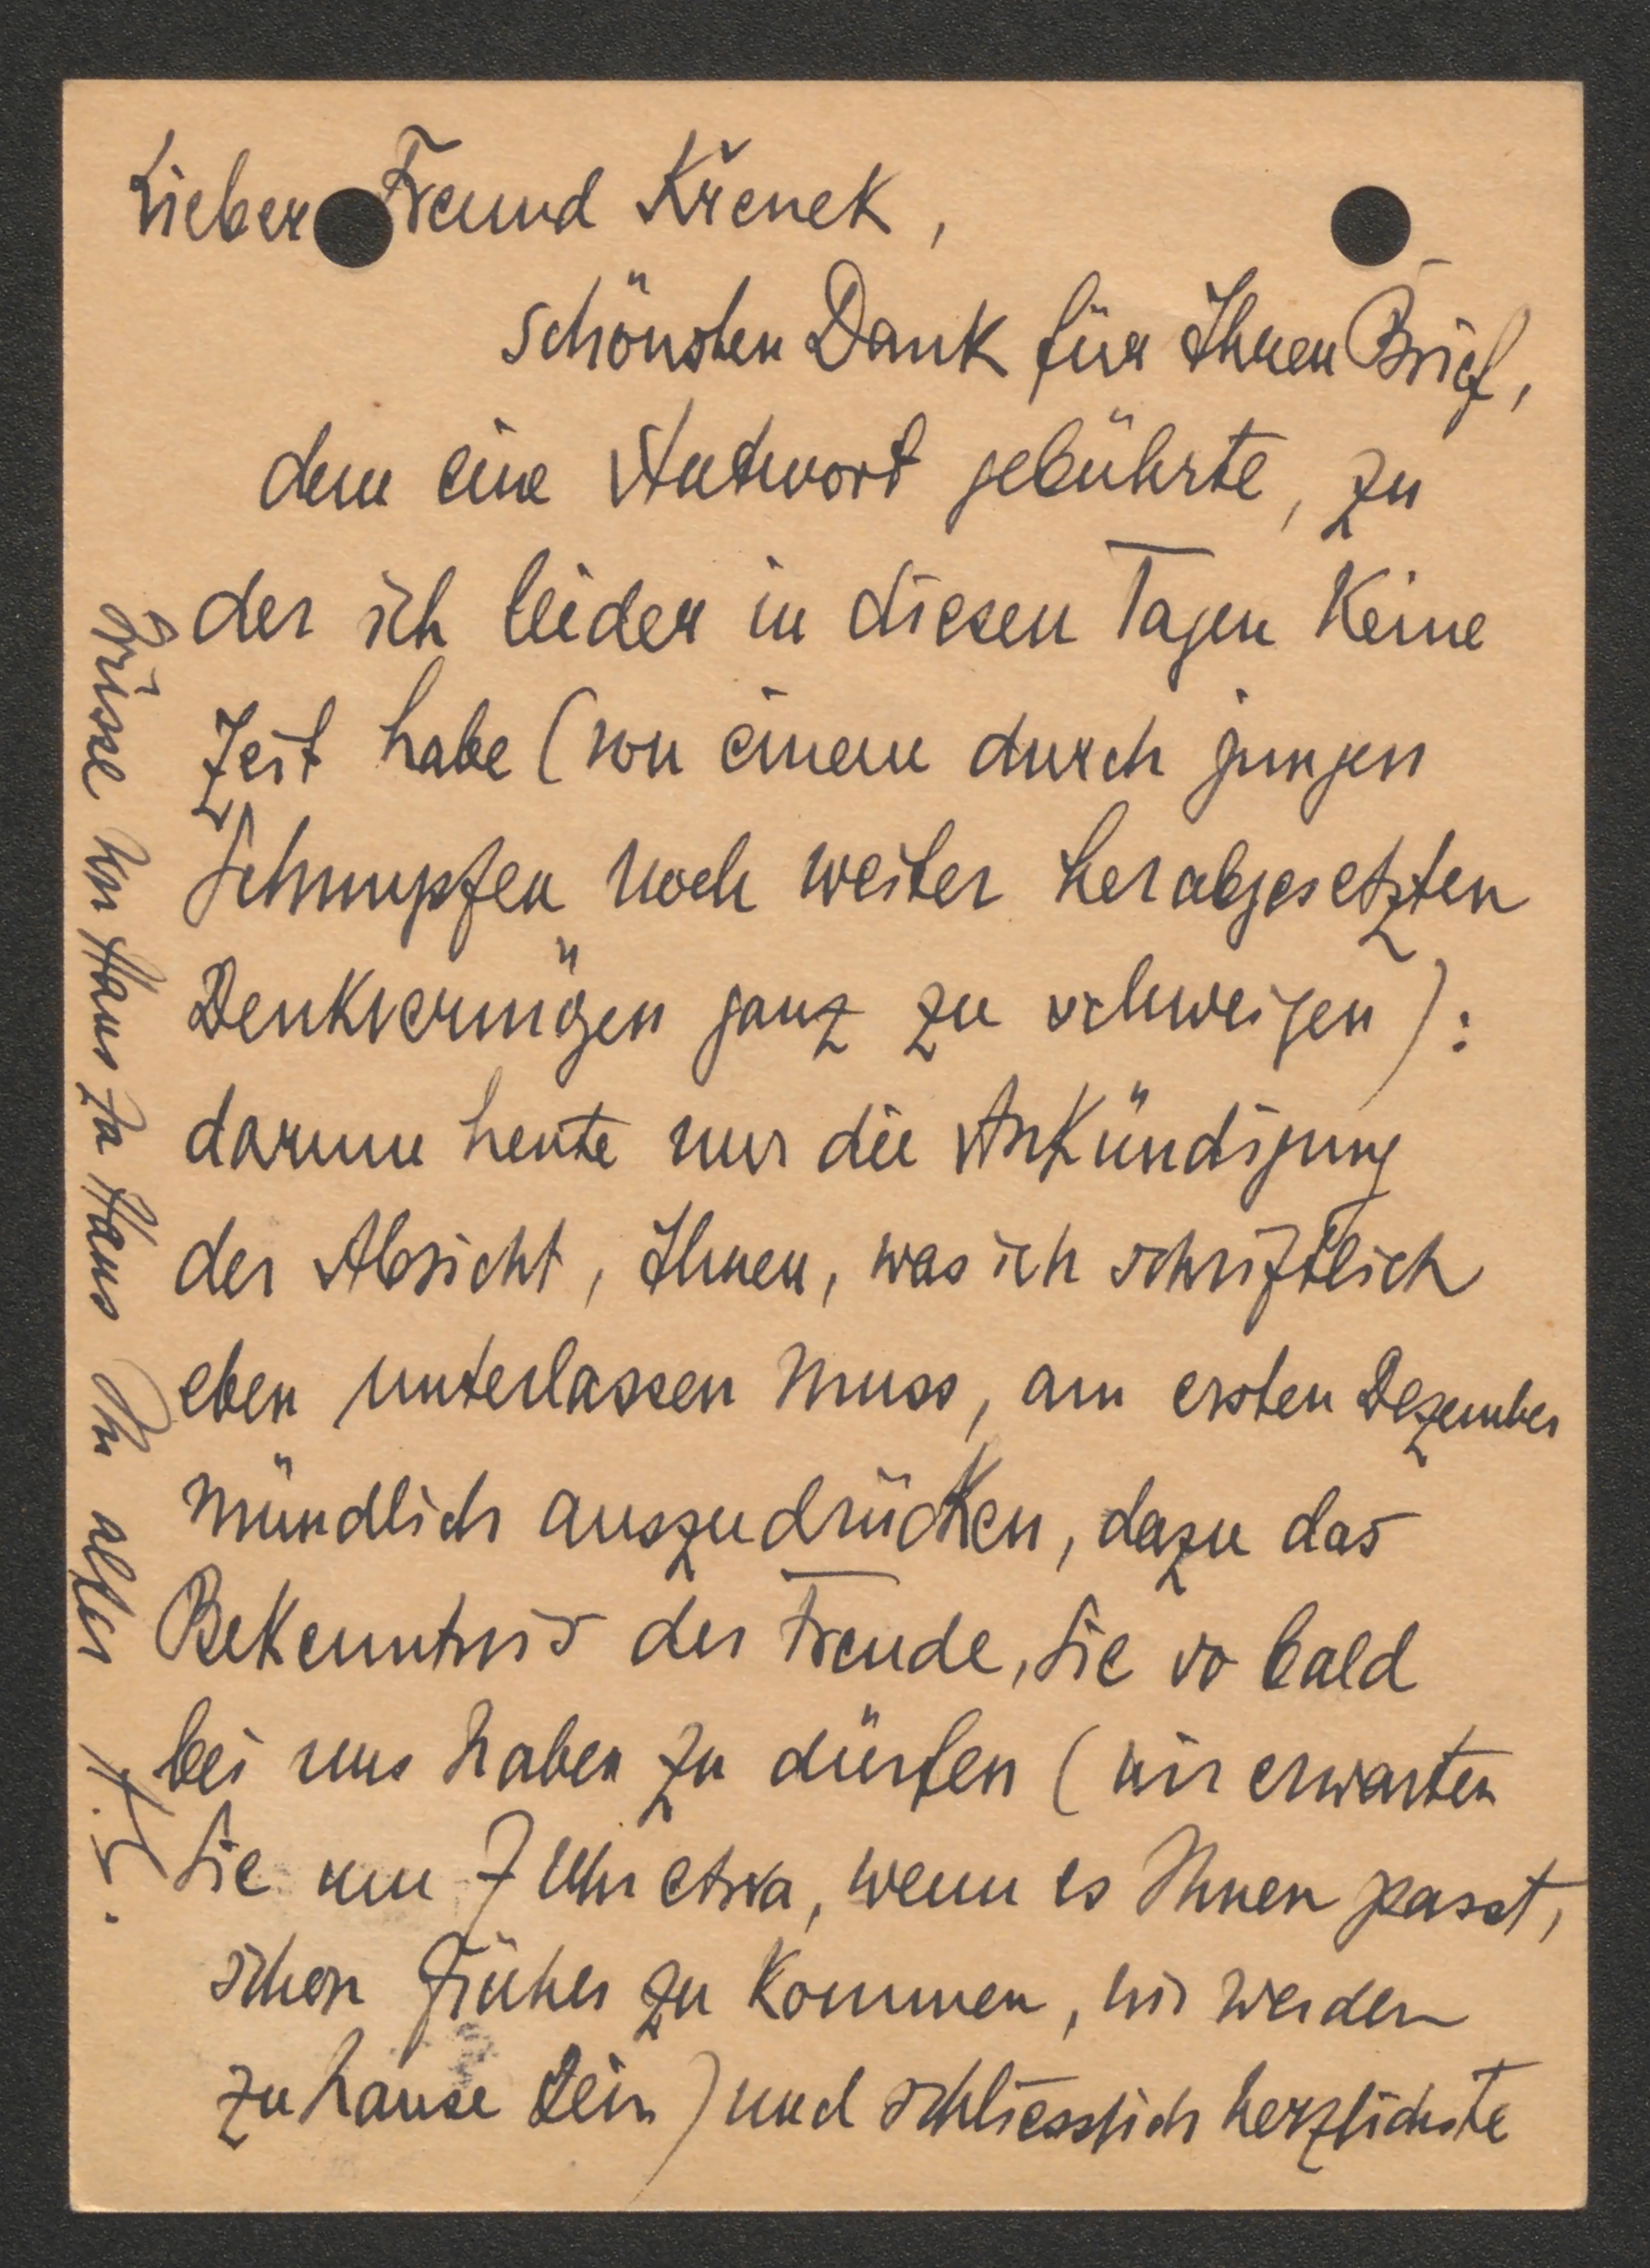 Lieber Freund Křenek,
schönsten Dank für Ihren Brief,
dem eine Antwort gebührte, zu
der ich leider in diesen Tagen keine
Zeit habe (von einem durch jungen
Schnupfen noch weiter herabgesetzten
Denkvermögen ganz zu schweigen):
darum heute nur die Ankündigung
der Absicht, Ihnen, was ich schriftlich
eben unterlassen muss, am ersten Dezember
mündlich auszudrücken, dazu das
Bekenntnis der Freude, Sie so bald
bei uns haben zu dürfen (wir erwarten
Sie um 7 Uhr etwa, wenn es Ihnen passt,
schon früher zu kommen, wir werden
zuhause sein) und schliesslich herzlichste
Grüsse von Haus zu Haus Ihr alter